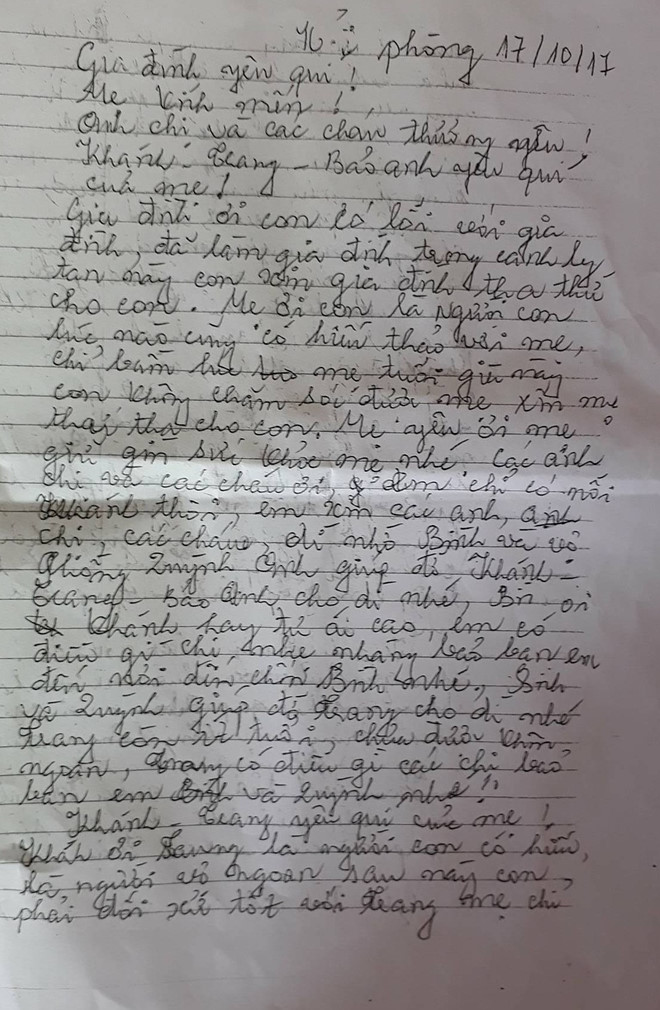 Hải phòng 17/10/17
Gia đình yêu quí!
Mẹ kính mến!,
Anh chị và các cháu thương yêu!
Khánh - Trang - Bảo anh yêu quí
của mẹ!
Gia đình ơi con có lỗi với gia
đình, đã làm gia đình trong cảnh ly
tan này con xin gia đình tha thứ
cho con. Mẹ ơi con là người con
lúc nào cũng có hiếu thảo với mẹ,
chỉ mẹ tuổi già này
con không chăm sóc được mẹ xin mẹ
tha cho con. Mẹ yêu ơi mẹ
giữ gìn sức khỏe mẹ nhé các anh
chị và các cháu ơi, chỉ có nỗi
thôi, em xin các anh,
chị, các cháu, dì nhờ Bình và vợ
Quỳnh Anh giúp đỡ Khánh -
Trang - Bảo Anh cho dì nhé, ơi
Khánh hay tự ái cao, em có
điều gì chị nhẹ nhàng bảo ban em
đến nơi đến chốn Bình nhé, Bình
và Quỳnh giúp đỡ Trang cho dì nhé
Trang còn ít tuổi, chưa được khôn
ngoan, Trang có điều gì các chị bảo
ban em và Quỳnh nhé!
Khánh - Trang yêu quí của mẹ!
Khánh ơi Trang là người con có hiếu,
là người vợ ngoan sau này con
phải đối xử tốt với Trang mẹ chỉ